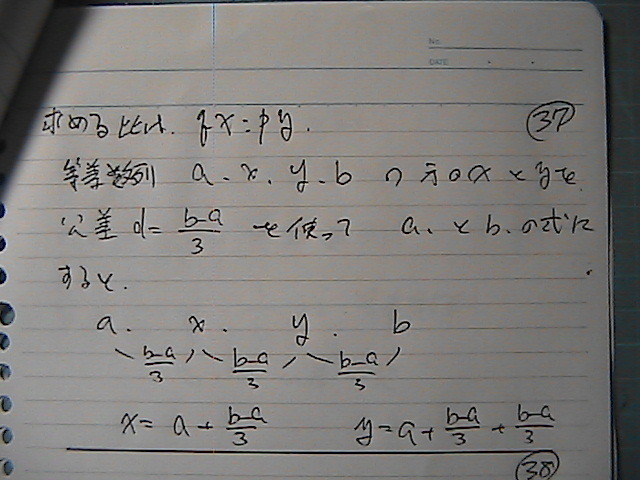 No.
DATE
求める比は. qx:py. ㊲
等差数列 a. x. y. b の xとyを
公差 d= b-a/3 を使って a. と b. の式に
すると.
a. x. y. b
b-a/3 b-a/3 b-a/3
x= a+ b-a/3 y=a+ b-a/3 + b-a/3
㊳